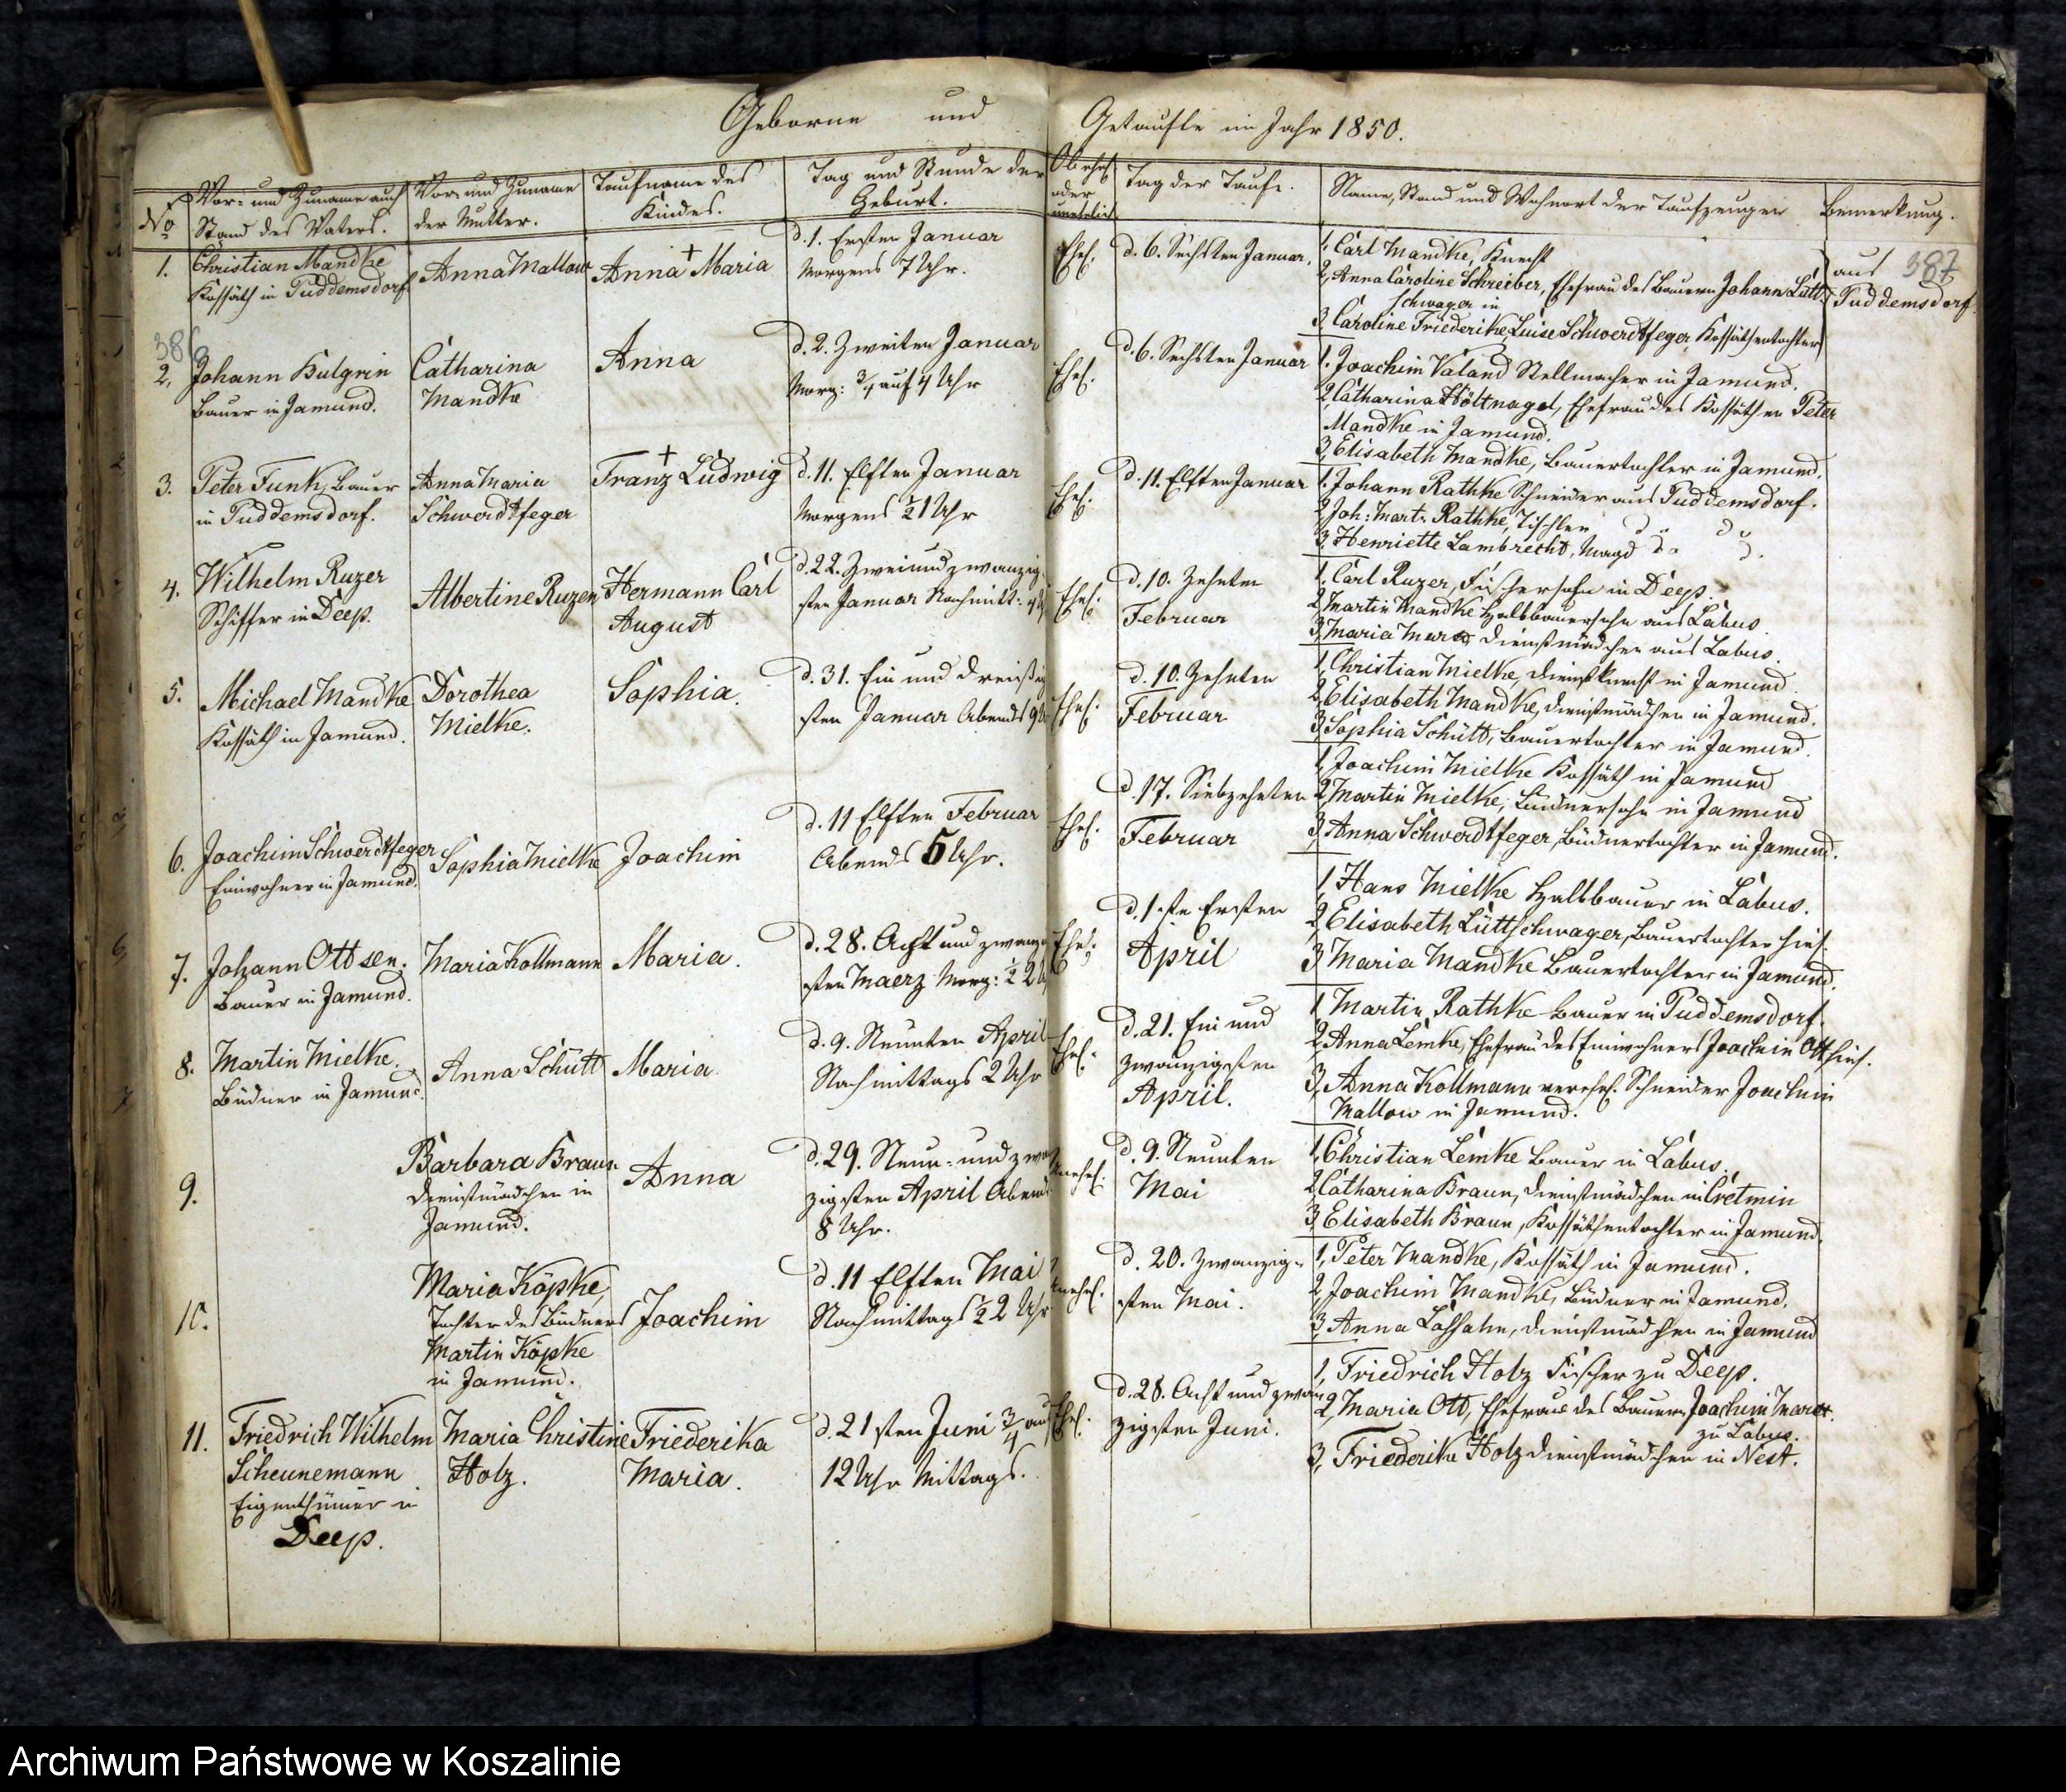 Geborne und Getaufte im Jahr 1850.
No
Vor- und Zuname auch
Stand des Vaters.
Vor- und Zuname
der Mutter.
Taufname des
Kindes.
Tag und Stunde der
Geburt.
Ob ehel.
oder
unehelich
Tag der Taufe.
Name, Stand und Wohnort der Taufzeugen
Bemerkung.
386
387
1.
Christian Mandke
Kossäth in Puddemsdorf
Anna Mallow
Anna + Maria
d. 1. Ersten Januar
Morgens 7 Uhr.
Ehel.
d. 6. Sechsten Januar.
1, Carl Mandke, Knecht
2, Anna Caroline Schreiber, Ehefrau des Bauern Johann Lütt-
schwager in
3, Caroline Friederike Luise Schwerdtfeger, Kossäthentochter
aus
Puddemsdorf.
2,
Johann Bulgrin
Bauer in Jamund.
Catharina
Mandke
Anna
d. 2. Zweiten Januar
Morg: 3/4 auf 4 Uhr
Ehel.
d. 6. Sechsten Januar
1. Joachim Valand Stellmacher in Jamund.
2, Catharina Höltnagel, Ehefrau des Kossäthen Peter
Mandke in Jamund.
3, Elisabeth Mandke, Bauertochter in Jamund.
3.
Peter Funk, Bauer
in Puddemsdorf.
Anna Maria
Schwerdtfeger
+
Franz Ludwig
d. 11. Elften Januar
Morgens 1/2 1 Uhr
Ehel.
d. 11. Elften Januar
1. Johann Rathke Schneider aus Puddemsdorf.
2, Joh: Mart: Rathke, Tischler do do
3, Henriette Lambrecht, Magd do do.
4.
Wilhelm Ruzer
Schiffer in Deep.
Albertine Ruzer
Hermann Carl
August
d. 22. Zweiundzwanzig-
sten Januar Nachmitt: 4
Ehel.
d. 10. Zehnten
Februar
1, Carl Ruzer, Fischersohn in Deep.
2, Martin Mandke Halbbauersohn aus Labus
3, Maria Dienstmädchen aus Labus.
5.
Michael Mandke
Kossäth in Jamund.
Dorothea
Mielke.
Sophia.
d. 31. Ein und dreißig
sten Januar Abends 9
Ehel.
d. 10. Zehnten
Februar
1, Christian Mielke, Dienstknecht in Jamund.
2, Elisabeth Mandke, Dienstmädchen in Jamund.
3, Sophia Schütt, Bauertochter in Jamund.
6.
Joachim Schwerdtfeger
Einwohner in Jamund.
Sophia Mielke
Joachim
d. 11 Elften Februar
Abends 5 Uhr.
Ehel.
d. 17. Siebzehnten
Februar
1, Joachim Mielke Kossäth in Jamund
2, Martin Mielke, Büdnersohn in Jamund
3, Anna Schwerdtfeger, Büdnertochter in Jamund.
7.
Johann Ott sen.
Bauer in Jamund.
Maria Kollmann
Maria.
d. 28. Acht und zwanzig
sten Maerz Morg: 1/2 2
Ehel.
d. 1ste Ersten
April
1, Hans Mielke Halbbauer in Labus.
2, Elisabeth Lüttschwager, Bauertochter hies.
3, Maria Mandke Bauertochter in Jamund.
8.
Martin Mielke,
Büdner in Jamund.
Anna Schütt
Maria.
d. 9. Neunten April
Nachmittags 2 Uhr
Ehel.
d. 21. Ein und
zwanzigsten
April.
1, Martin Rathke Bauer in Puddemsdorf.
2, Anna Lemke, Ehefrau des Einwohners Joachim Ott hies.
3, Anna Kollmann verehel. Schneider Joachim
Mallow in Jamund.
9.
Barbara Braun
Dienstmädchen in
Jamund.
Anna
d. 29. Neun- und zwan
zigsten April Abends
8 Uhr.
Unehel.
d. 9. Neunten
Mai
1, Christian Lemke Bauer in Labus.
2, Catharina Braun, Dienstmädchen in Cretmin
3, Elisabeth Braun, Kossäthentochter in Jamund.
10.
Maria Köpke,
Tochter des Büdners
Martin Köpke
in Jamund.
Joachim
d. 11 Elften Mai
Nachmittags 1/2 2 Uhr
Unehel.
d. 20. Zwanzig-
sten Mai.
1, Peter Mandke, Kossäth in Jamund.
2, Joachim Mandke, Büdner in Jamund.
3, Anna Lassahn, Dienstmädchen in Jamund
11.
Friedrich Wilhelm
Scheunemann
Eigenthümer in
Deep.
Maria Christine
Holz.
Friederika
Maria.
d. 21sten Juni 3/4 auf
12 Uhr Mittags.
Ehel.
d. 28. Acht und zwan
zigsten Juni.
1, Friedrich Holz Fischer zu Deep.
2, Maria Ott, Ehefrau des Bauern Joachim
zu Labus.
3, Friederike Holz Dienstmädchen in Nest.
Archiwum Państwowe w Koszalinie